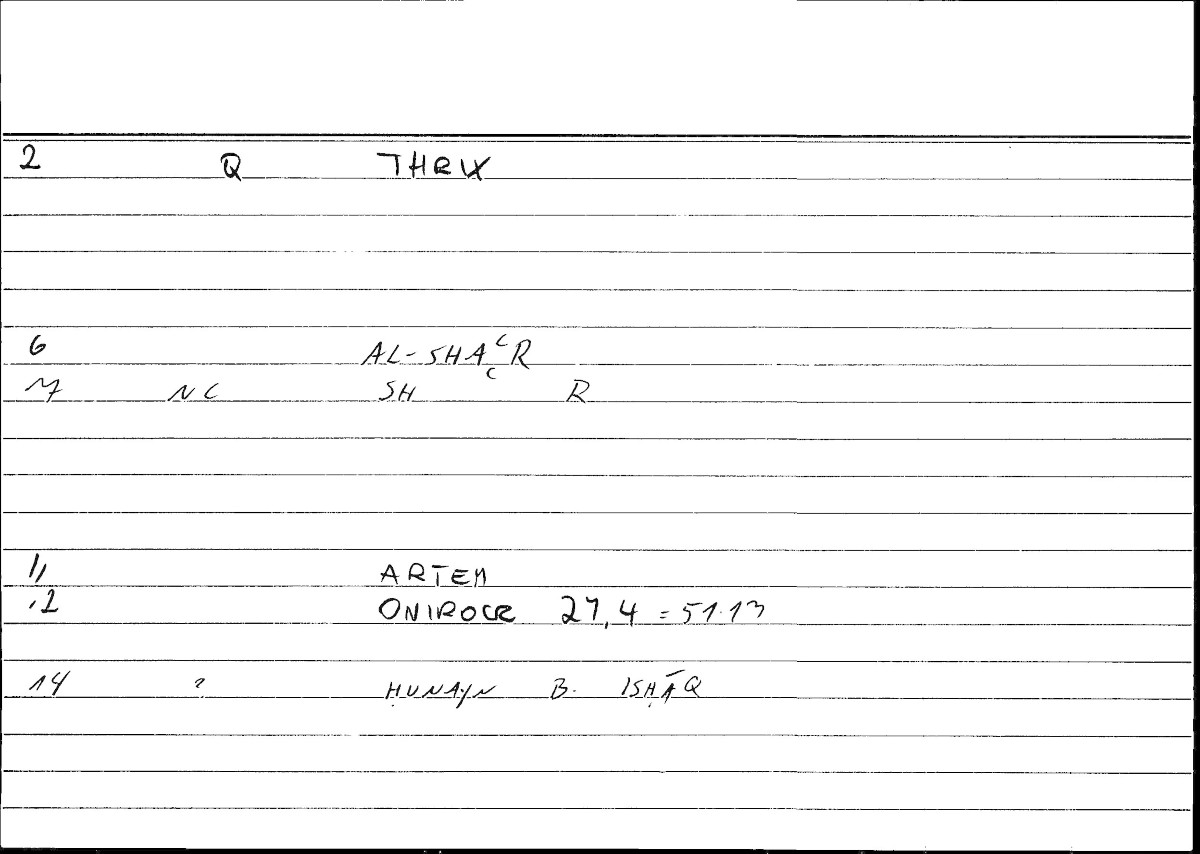 2 Q THRIX
6 AL-SHAʿR
7 NC SHʿR
11 ARTEM
12 ONIROCR 27,4 = 51.13
14 ? ḤUNAYN B. ISḤĀQ